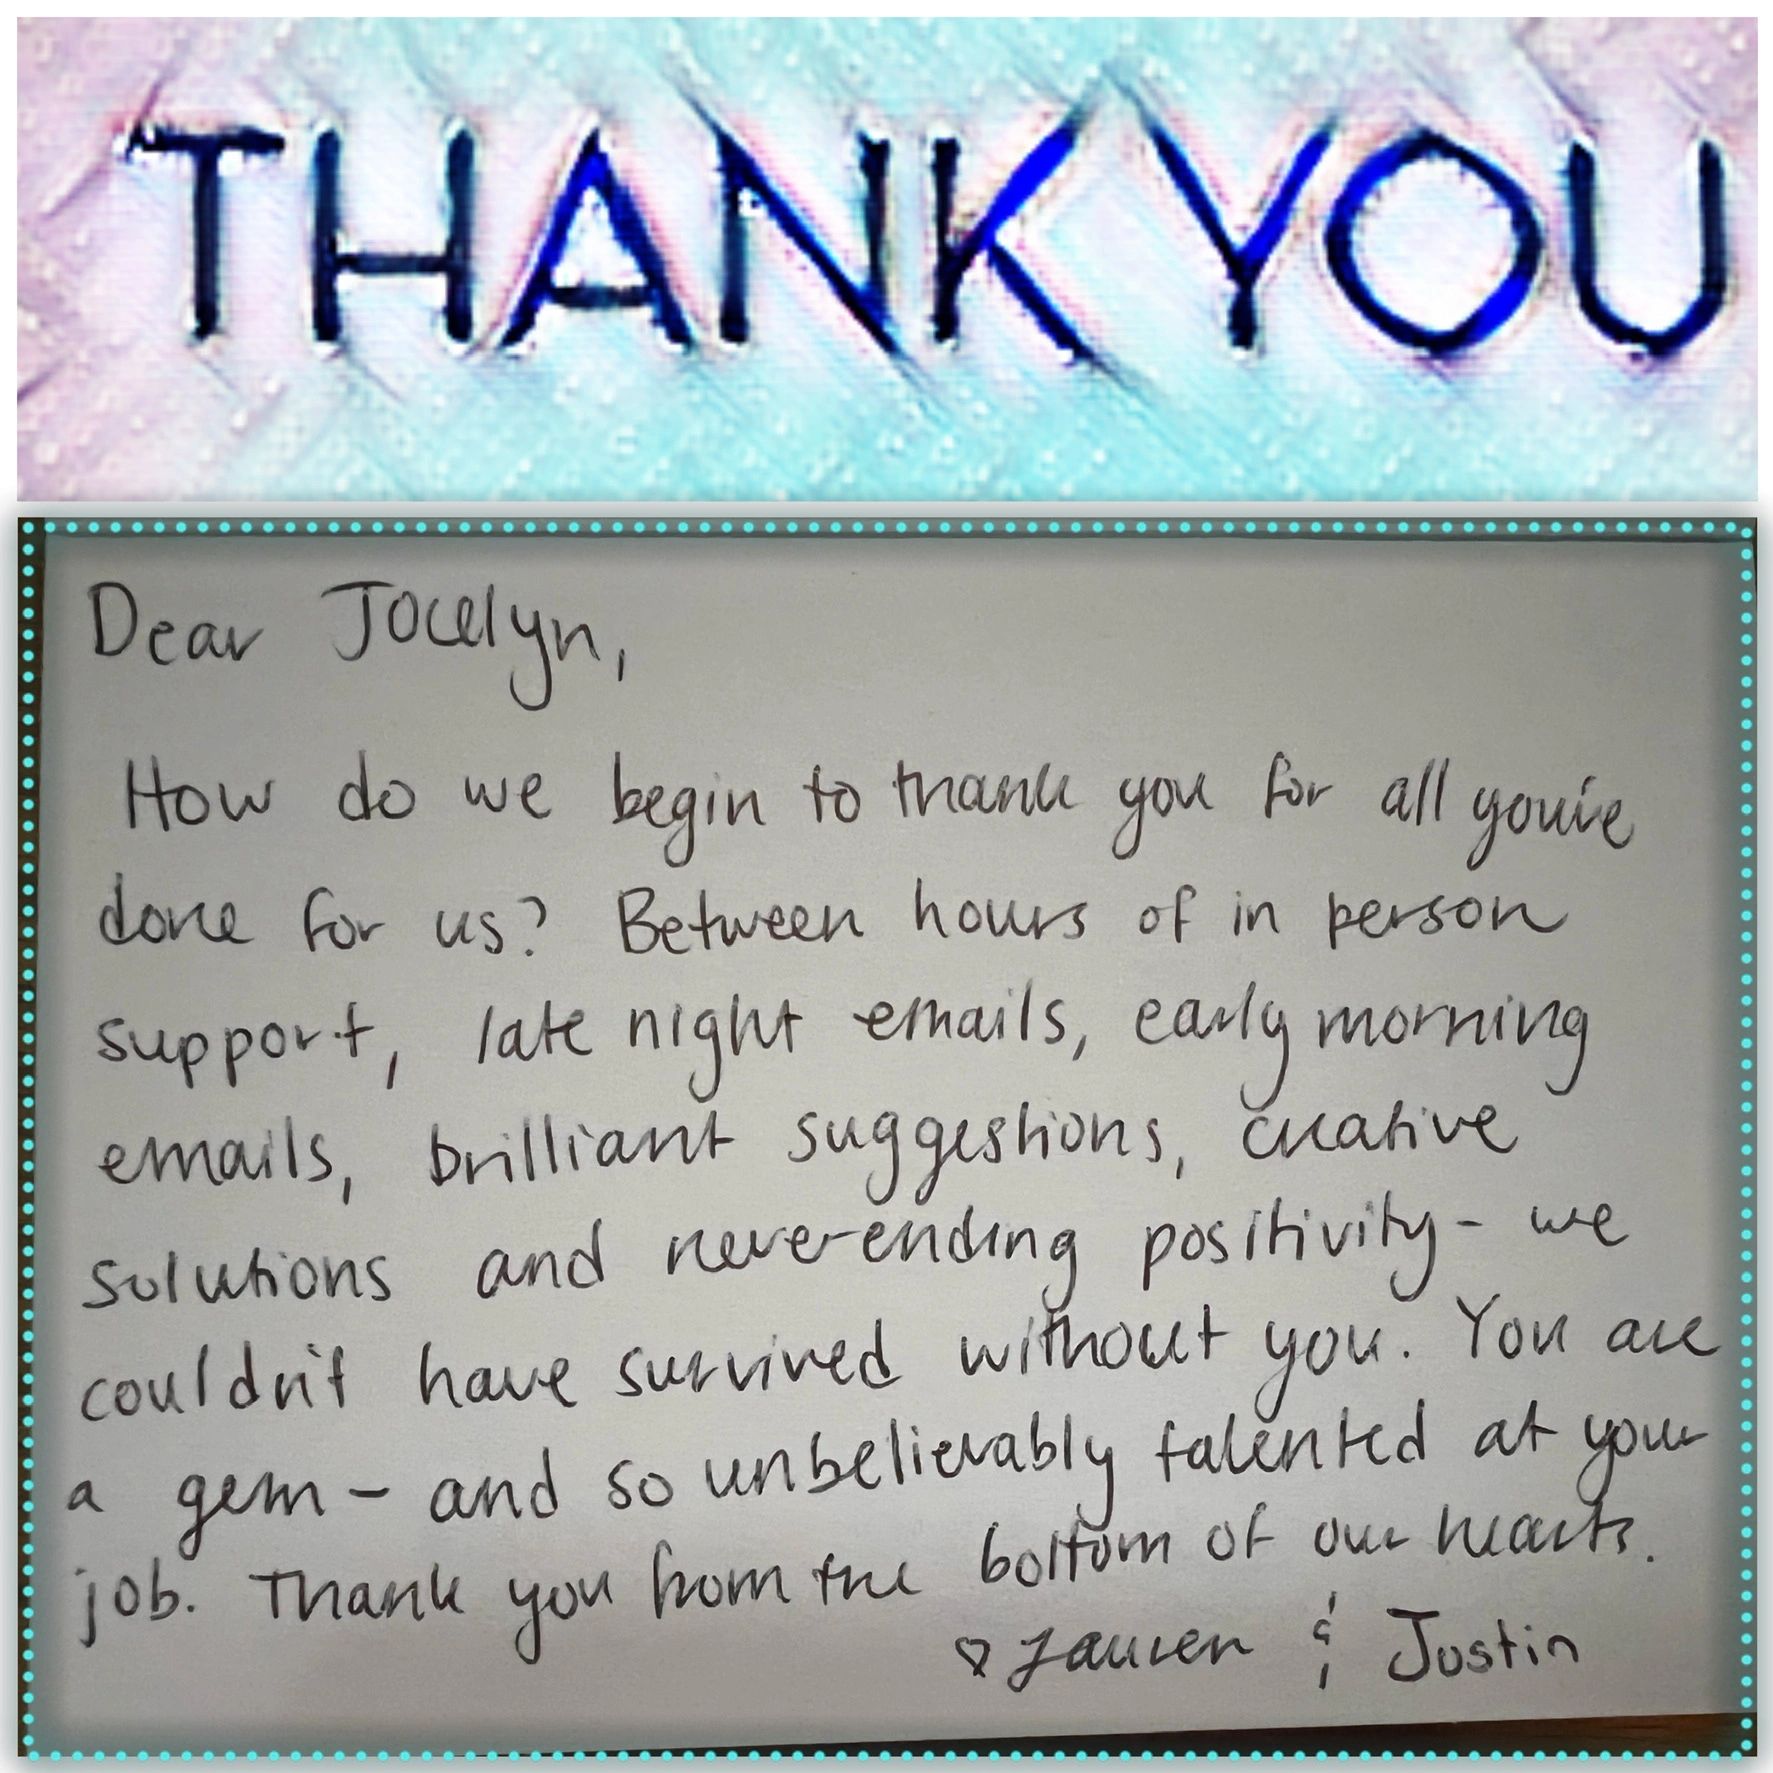 THANK YOU
Dear Jocelyn,
How do we begin to thank you for all you've
done for us? Between hours of in person
support, late night emails, early morning
emails, brilliant suggestions, creative
solutions and never-ending positivity - we
couldn't have survived without you. You are
a gem - and so unbelievably talented at your
job. Thank you from the bottom of our hearts.
♡ Lauren & Justin